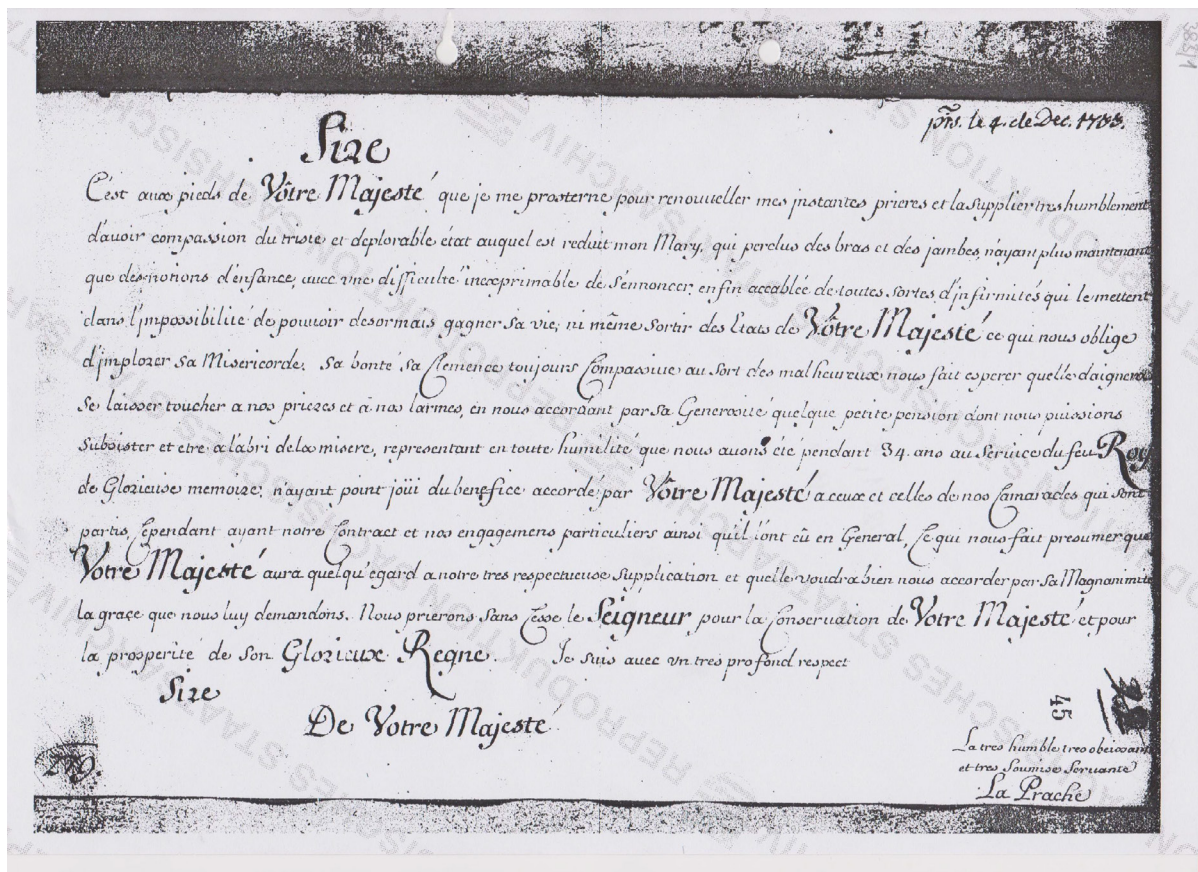 pns. le 4. de Dec. 1733.
Sire
C'est aux pieds de Vôtre Majesté que je me prosterne pour renouveller mes jnstantes prieres et la supplier tres humblement
d'avoir compassion du triste et deplorable état auquel est reduit mon Mary, qui perclus des bras et des jambes, n'ayant plus maintenant
que des notions d'enfance, avec vne difficulté inexprimable de s'ennoncer, enfin accablée de toutes sortes d'jnfirmités qui le mettent
dans l'jmpossibilité de pouvoir desormais gagner sa vie, ni même sortir des Etats de Vôtre Majesté ce qui nous oblige
d'jmplorer sa Misericorde. Sa bonté sa Clemence toujours Compassive au sort des malheureux nous fait esperer quelle daignera
se laisser toucher a nos prieres et à nos larmes, en nous accordant par sa Generosité quelque petite pension dont nous puissions
subsister et etre a l'abri de la misere, representant en toute humilité que nous avons été pendant 34. ans au service du feu Roy
de Glorieuse memoire; n'ayant point joüi du benefice accordé par Vôtre Majesté a ceux et celles de nos Camarades qui sont
partis, Cependant ayant notre Contract et nos engagemens particuliers ainsi quil l'ont eû en General, Ce qui nous fait presumer que
Vôtre Majesté aura quelqu'egard a notre tres respectueuse supplication et quelle voudra bien nous accorder par sa Magnanimité
la grace que nous luy demandons. Nous prierons sans Cesse le Seigneur pour la Conservation de Vôtre Majesté et pour
la prosperité de son Glorieux Regne. Je suis avec vn tres profond respect
Sire
De Votre Majesté
45
La tres humble tres obeissante
et tres soumise servante
La Prache
279.